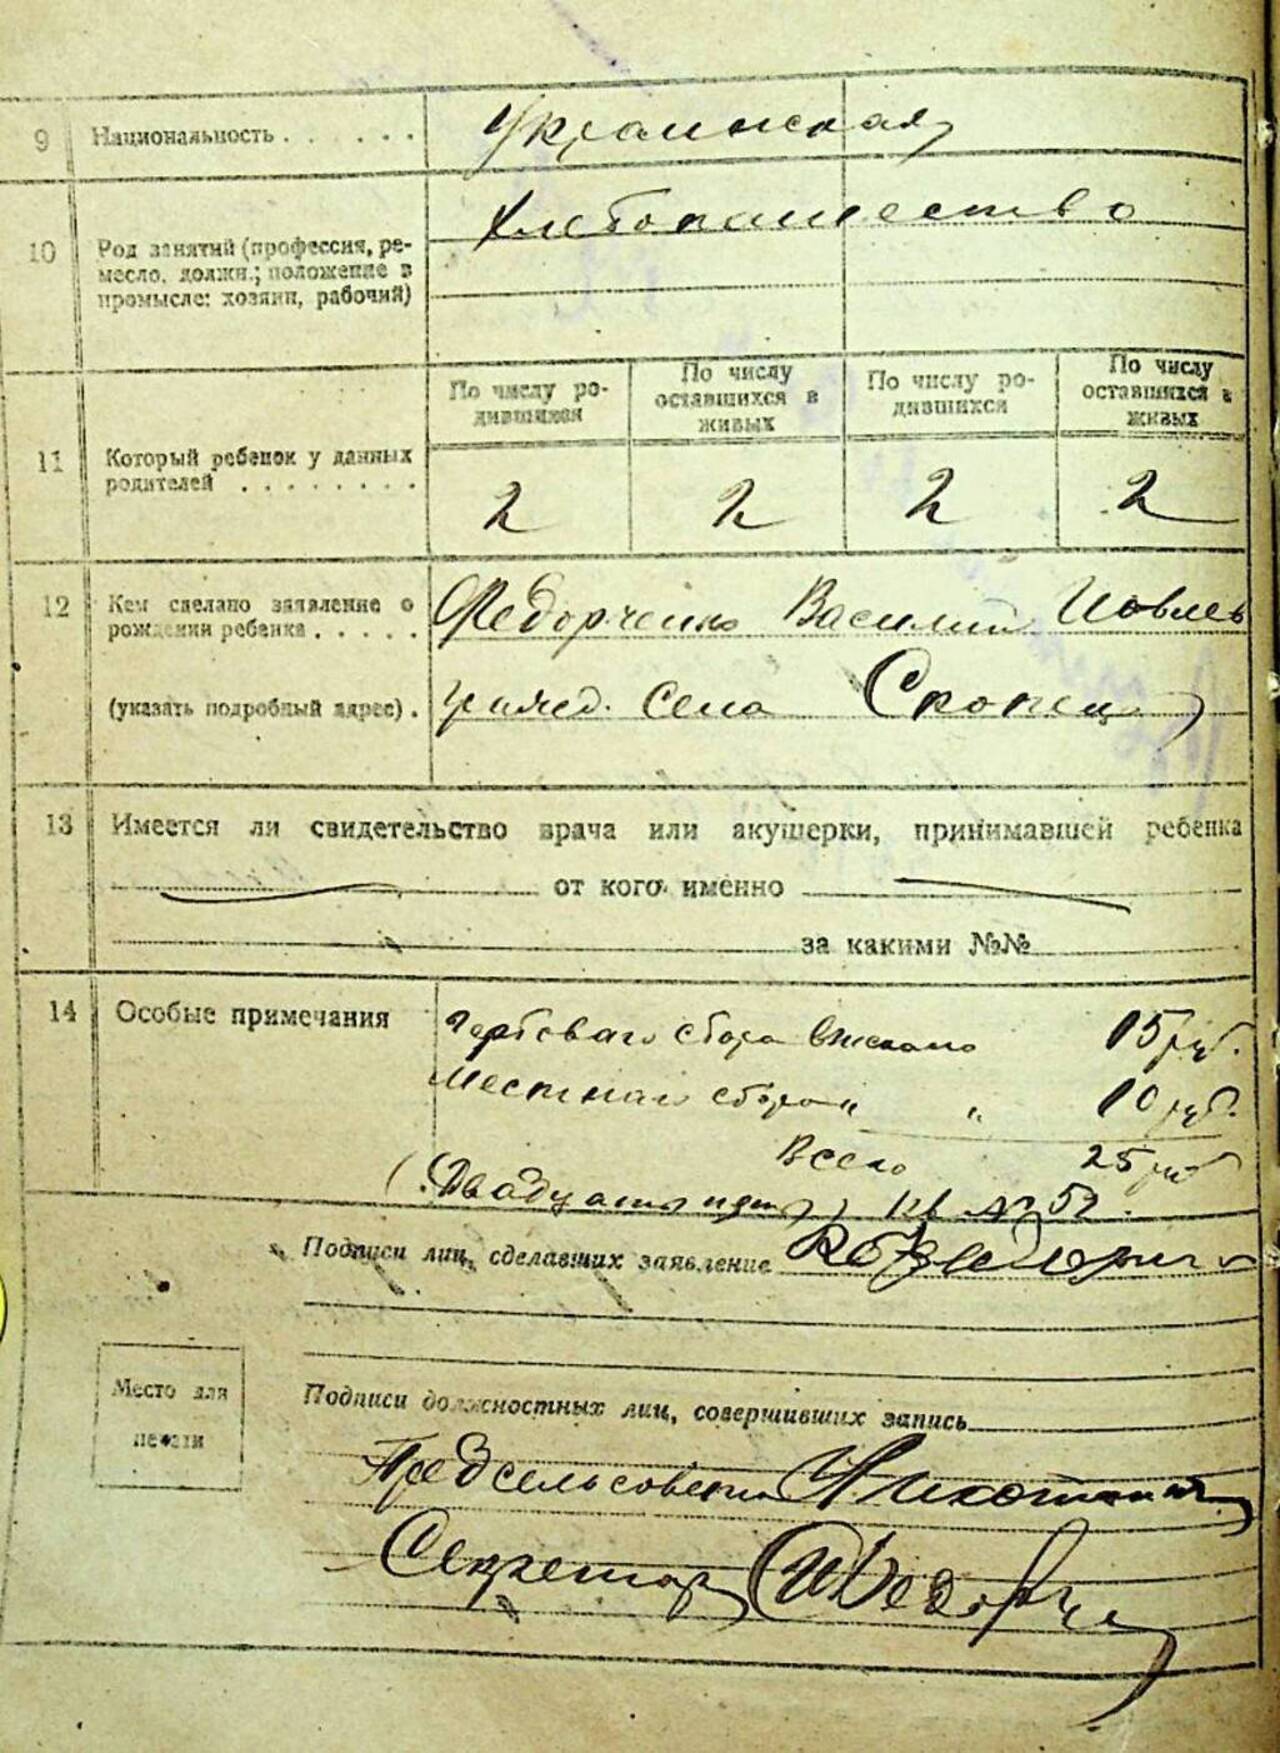 9 Национальность . . . . . . Украинская
Хлебопашество
10 Род занятий (профессия, ре-
месло, должн.; положение в
промысле: хозяин, рабочий)
По числу ро- По числу По числу ро- По числу
дившихся оставшихся в дившихся оставшихся в
живых живых
11 Который ребенок у данных
родителей . . . . . . . .
2 2 2 2
12 Кем сделано заявление о Федорченко Василий Иовлев
рождении ребенка . . . . .
(указать подробный адрес) . села
13 Имеется ли свидетельство врача или акушерки, принимавшей ребенка
от кого именно
за какими №№
14 Особые примечания Гербоваго сбора взыскано 15 руб.
Местнаго сбора " " 10 руб.
Всего 25 руб
(Двадцать пять) кв № 52.
Подписи лиц, сделавших заявление
Место для
печати
Подписи должностных лиц, совершивших запись
Предсельсовета
Секретарь